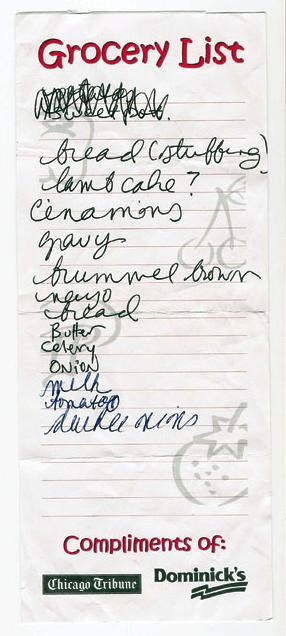 Grocery List
bread (stuffing)
lamb cake ?
Cinamins
gravy
brummel brown
mayo
bread
Butter
Celery
ONION
milk
tomato
durkee onions
Compliments of:
Chicago Tribune
Dominick's